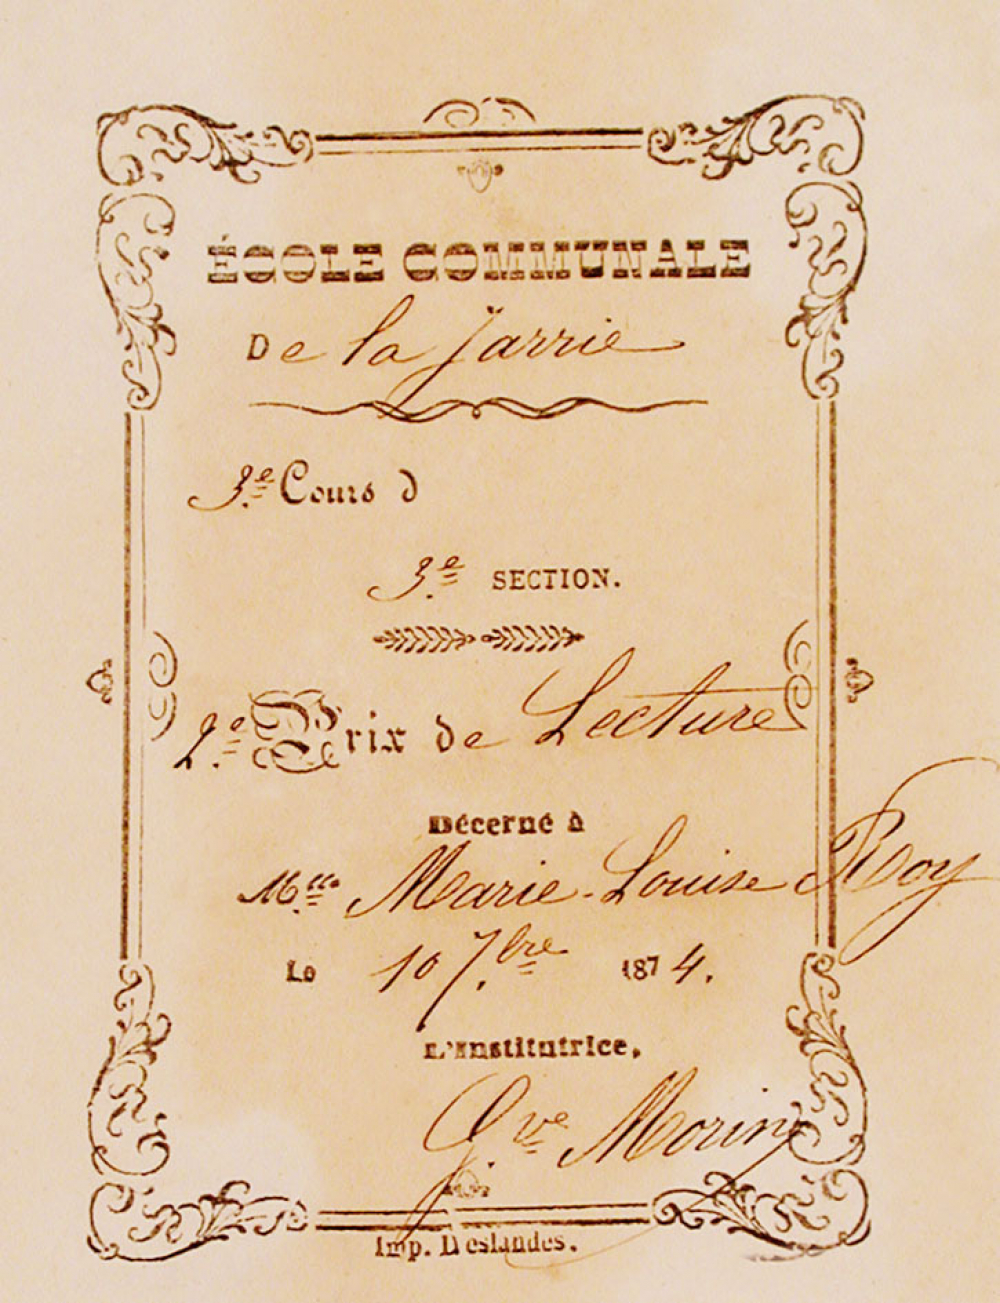 ÉCOLE COMMUNALE
De la Jarrie
3.e Cours d
3.e SECTION.
2.e Prix de Lecture
Décerné à
M.elle Marie-Louise Roy
Le 10 7.bre 1874.
L'Institutrice,
G.ve Morin
Imp. Deslandes.